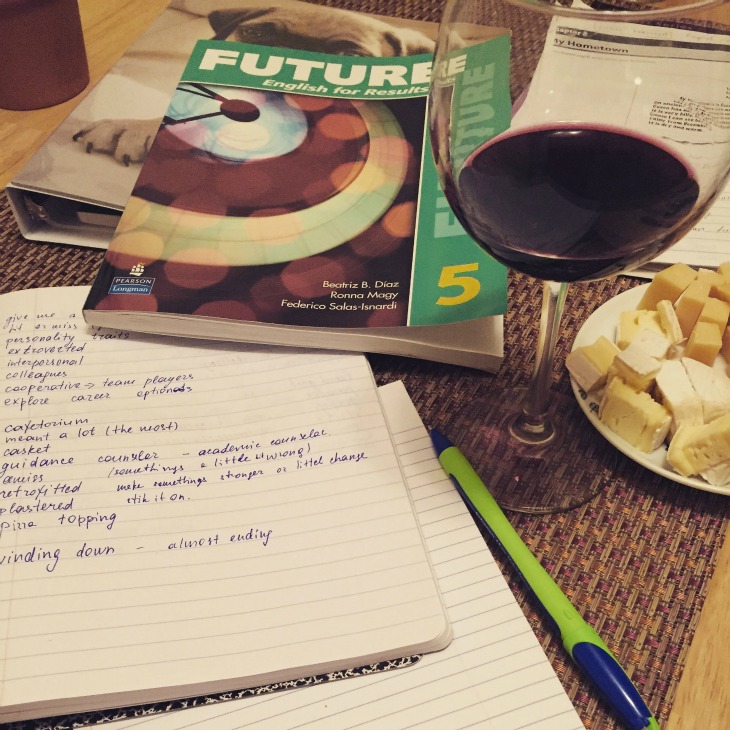 FUTURE
English for Results
FUTURE
5
Beatriz B. Díaz
Ronna Magy
Federico Salas-Isnardi
PEARSON
Longman
My Hometown
give me a
ht or miss
personality traits
extroverted
interpersonal
colleagues
cooperative → team players
explore career options
cafetorium
meant a lot (the most)
casket
guidance counselor - academic counselac.
amiss (somethings a little wrong)
retrofitted make somethings stronger or littel change
plastered stik it on.
pizza topping
winding down - almost ending